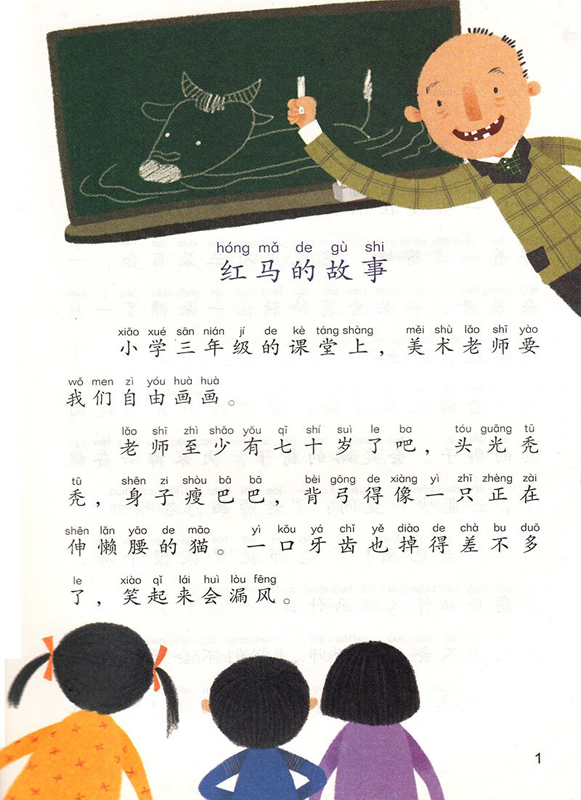 hóng mǎ de gù shi
红马的故事
xiǎo xué sān nián jí de kè táng shàng měi shù lǎo shī yào
小学三年级的课堂上，美术老师要
wǒ men zì yóu huà huà
我们自由画画。
lǎo shī zhì shǎo yǒu qī shí suì le ba tóu guāng tū
老师至少有七十岁了吧，头光秃
tū shēn zi shòu bā bā bèi gōng de xiàng yì zhī zhèng zài
秃，身子瘦巴巴，背弓得像一只正在
shēn lǎn yāo de māo yì kǒu yá chǐ yě diào de chà bu duō
伸懒腰的猫。一口牙齿也掉得差不多
le xiào qǐ lái huì lòu fēng
了，笑起来会漏风。
1